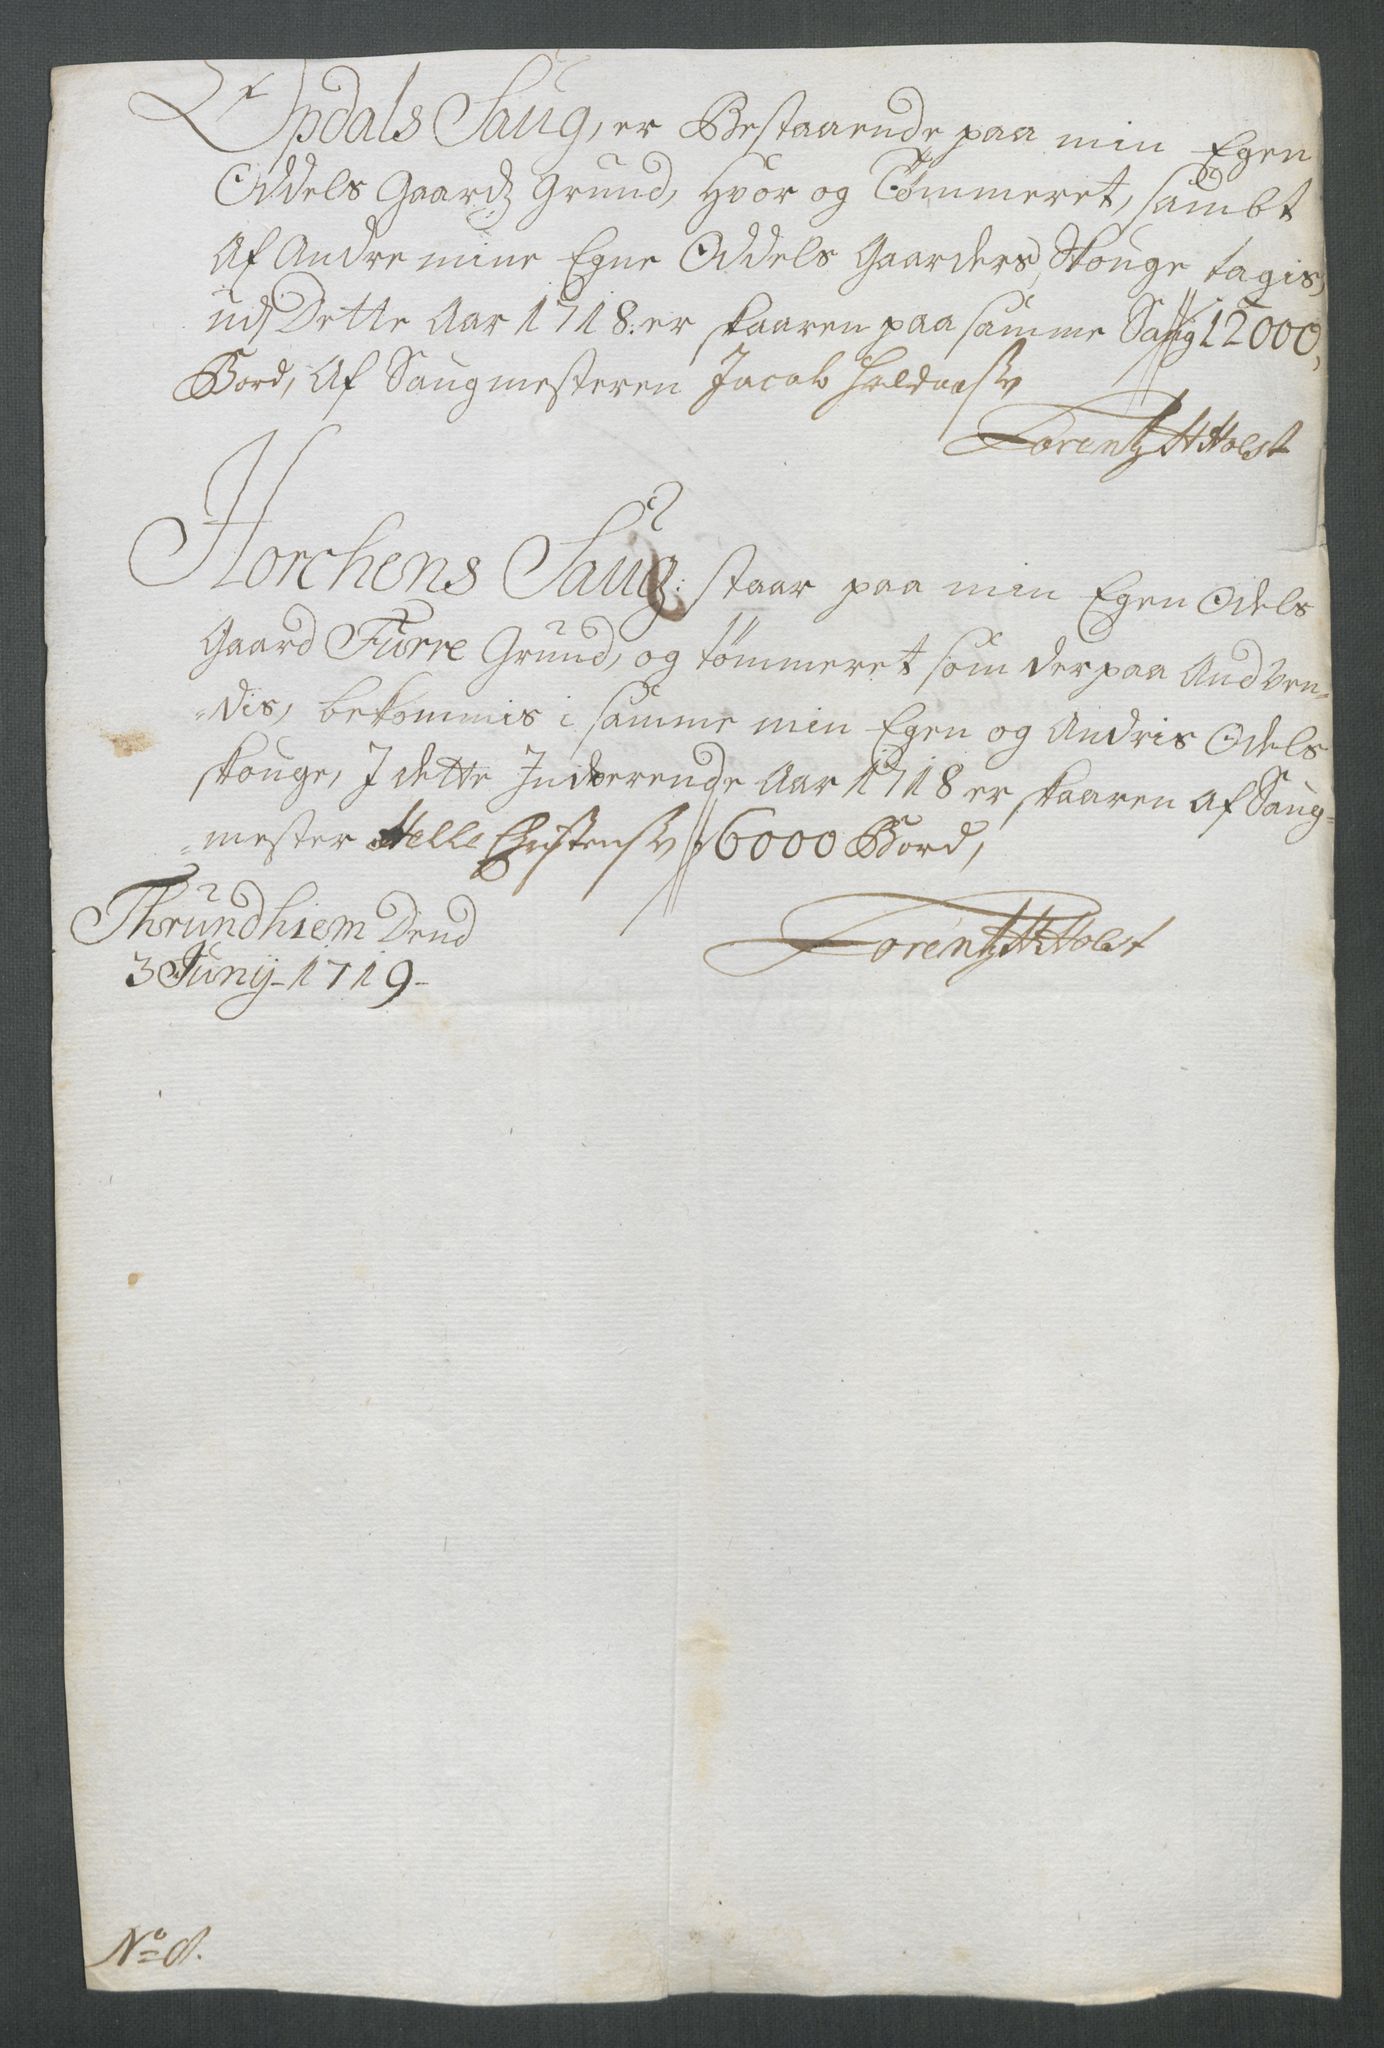 Opdals Saug, er Bestaaende paa min Egen
Oddels Gaardz Grund, hvor og Tømmeret, sambt
Af Andre mine Egne Oddels Gaarders Skouge tagis,
udj Dette Aar 1718. er skaaren paa samme Saug 12000,
Bord, Af Saugmesteren Jacob Haldorsßn
Lorentz HHolst
Horchens Saug: staar paa min Egen Odels
Gaard Furre Grund, og tømmeret som derpaa Andven-
-dis, bekommis i samme min Egen og Andris Odels
skouge, I dette Indverende Aar 1718 er skaaren Af Saug-
-mester Helle Christensßn 6000 Bord,
Thrundhiem Dend
3 Junij - 1719 -
Lorentz HHolst
No